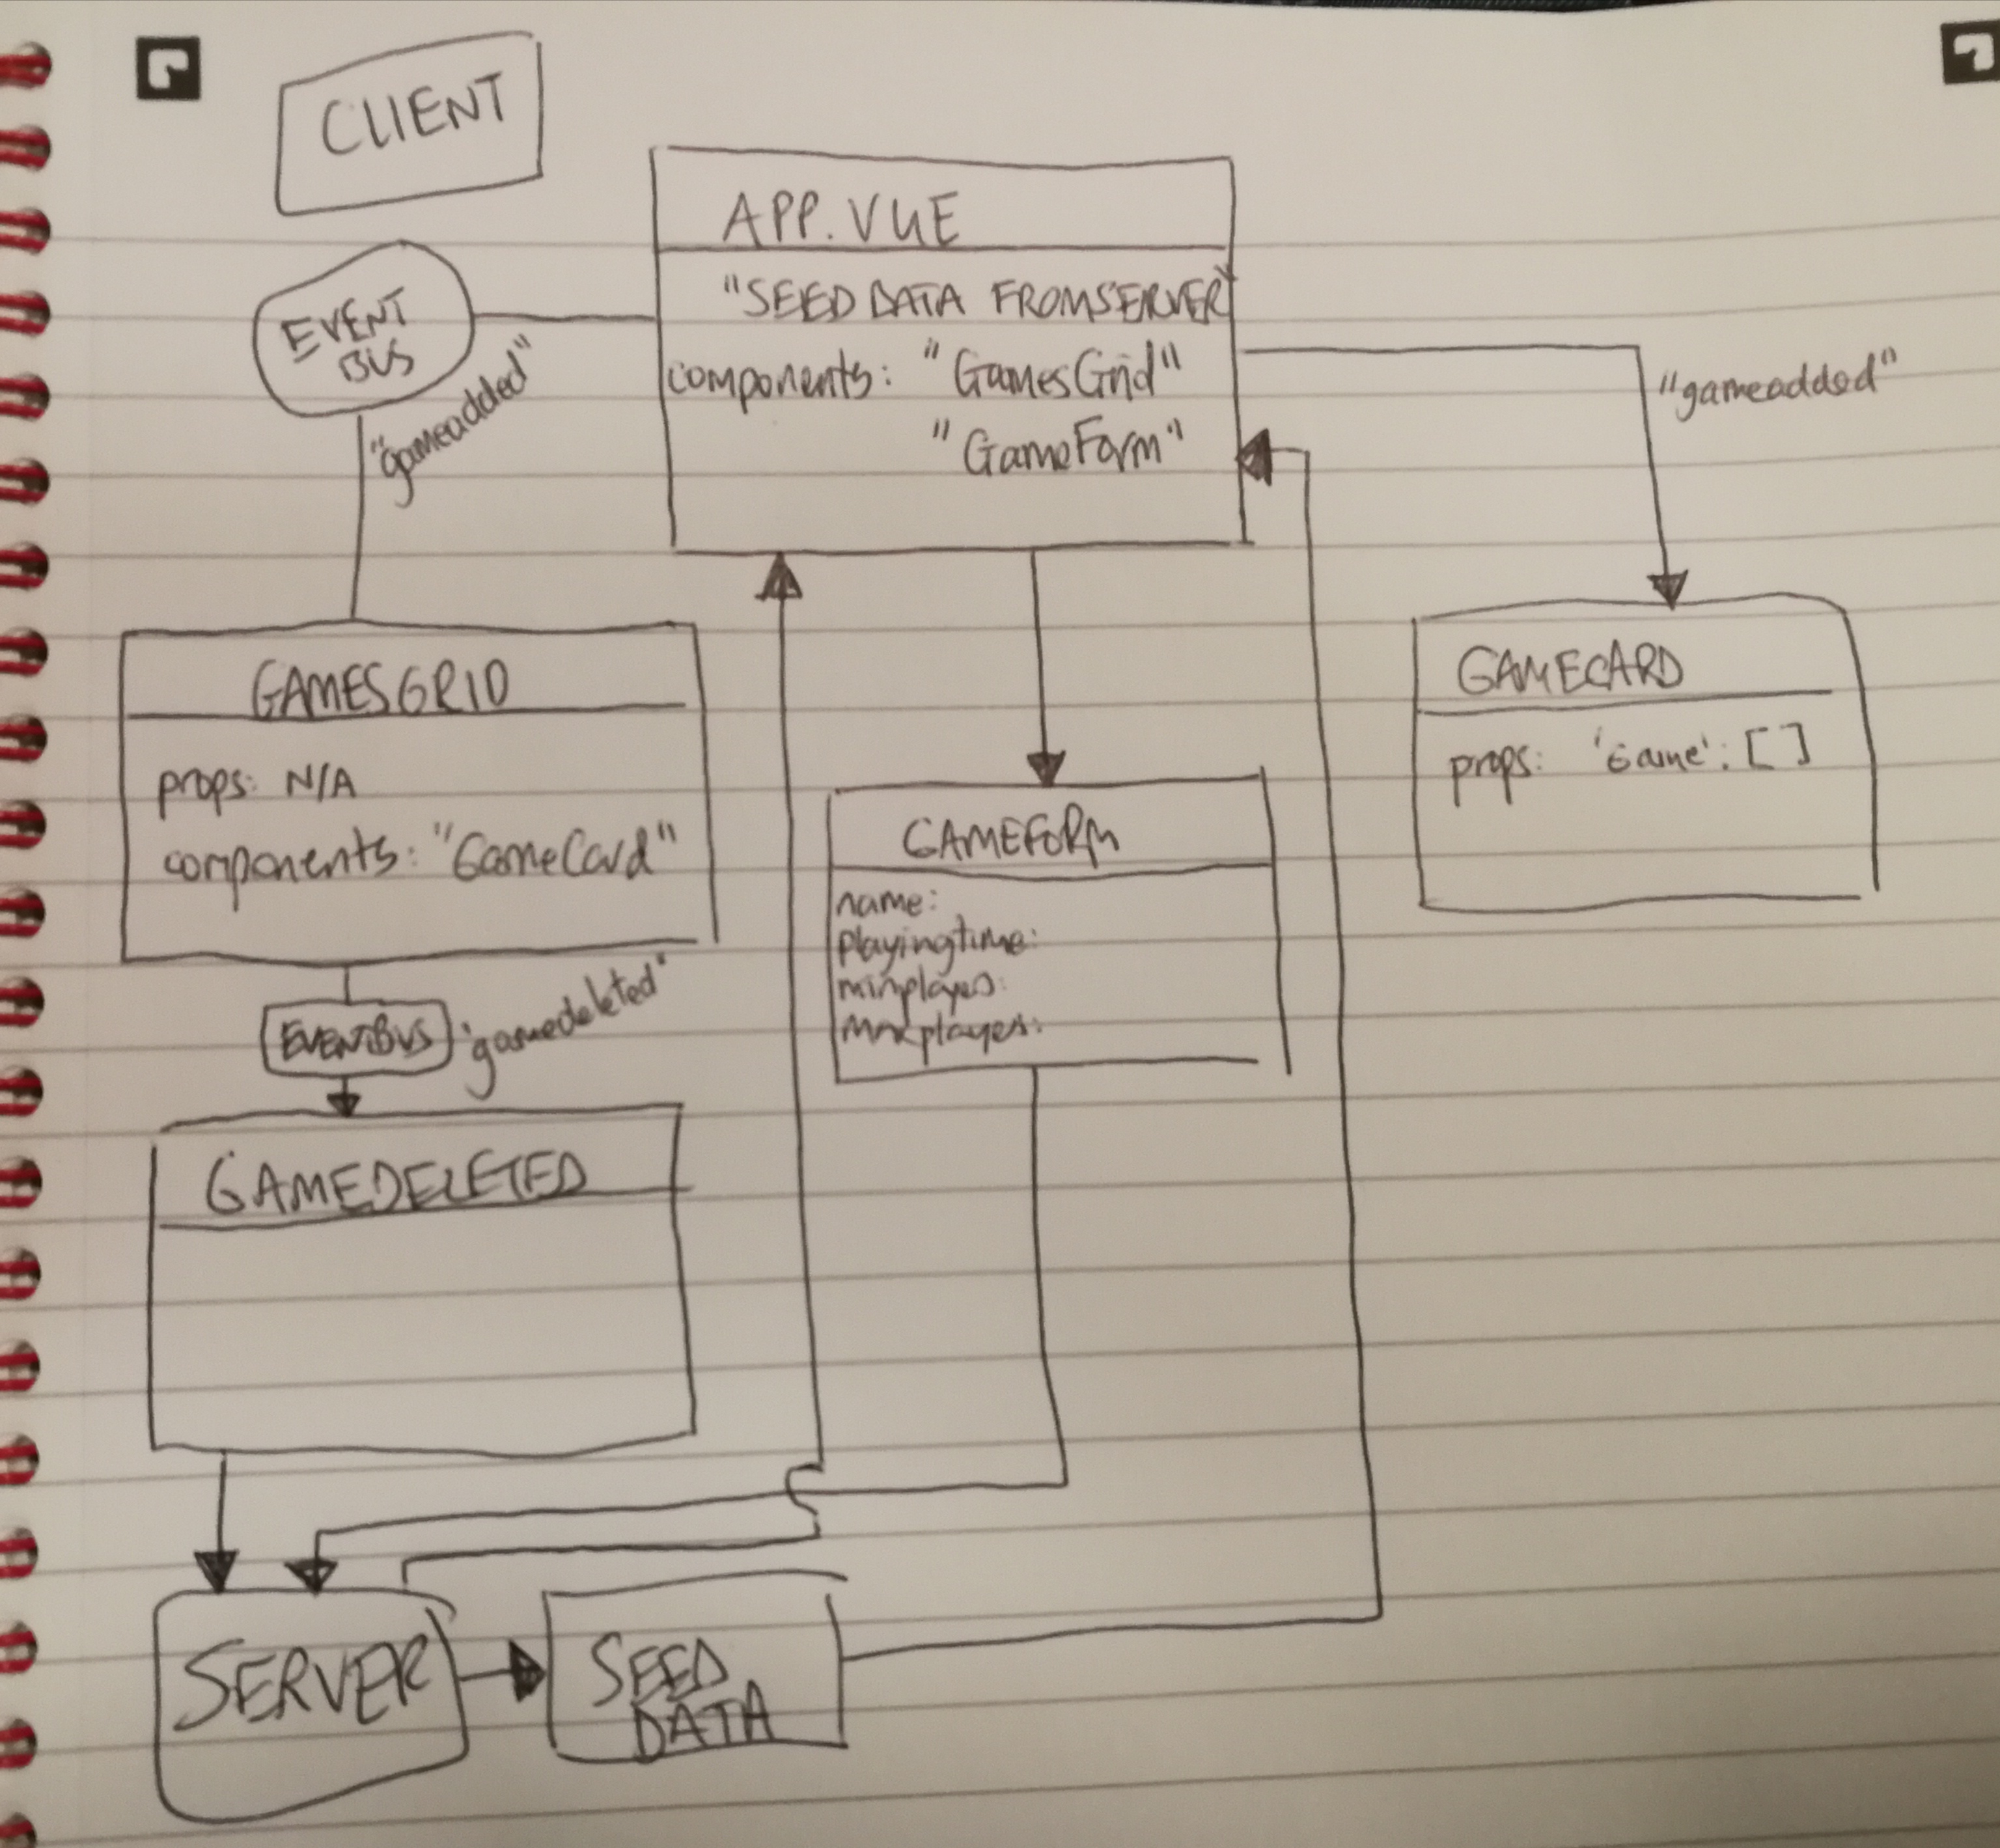 CLIENT
APP.VUE
"SEED DATA FROM SERVER"
components: "GamesGrid"
"GameForm"
EVENT
BUS
"gameadded"
"gameadded"
GAMESGRID
props: N/A
components: "GameCard"
GAMECARD
props: 'Game': []
GAMEFORM
name:
playingtime:
EVENTBUS
'gamedeleted'
GAMEDELETED
SERVER
SEED
DATA